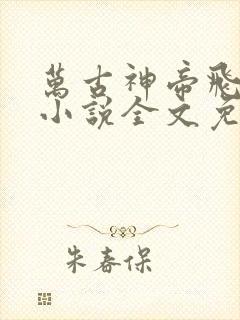 萬古神帝飛
小說全文免
朱春保